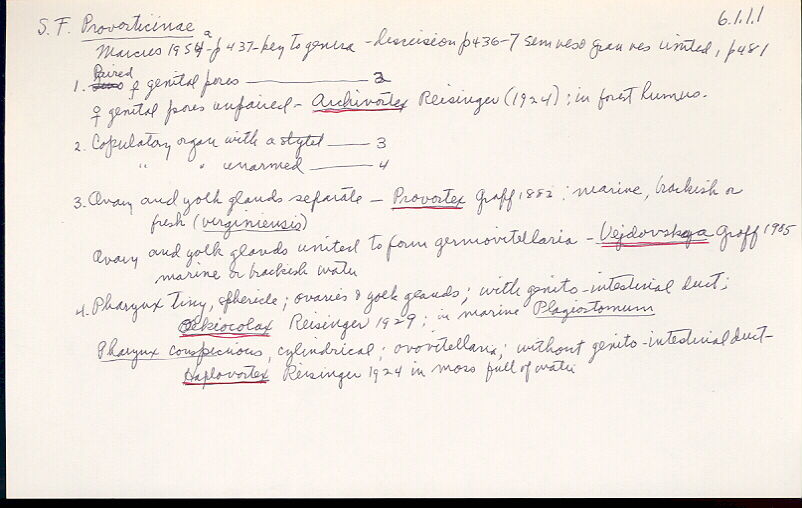 6.1.1.1
S. F. Provorticinae
Marcus 1954a-p437-key to genera - discission p436-7 united, p481
Paired
1. ♀ genital pores — 2
♀ genital pores unpaired - Archivortex Reisinger (1924); in forest humus.
2. Copulatory organ with a stylet — 3
" " unarmed — 4
3. Ovary and yolk glands separate - Provortex Graff 1882; marine, brackish or
fresh (virginiensis)
Ovary and yolk glands united to form germovitellaria - Vejdovskya Graff 1905
marine or brackish water
4. Pharynx tiny, sphericle; ovaries & yolk glands; with genito-intestinal duct;
Oekiocolax Reisinger 1929; in marine Plagiostomum
Pharynx conspicuous, cylindrical; ovovitellaria; without genito-intestinal duct-
Haplovortex Reisinger 1924 in moss full of water